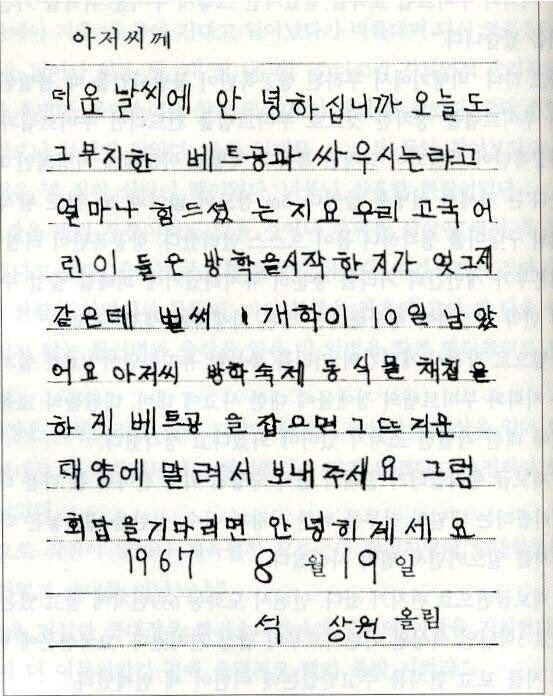 아저씨께
더운 날씨에 안녕하십니까 오늘도
그무지한 베트공과 싸우시는라고
얼마나 힘드셨는지요 우리 고국 어
린이들은 방학을시작한지가 엊그제
같은데 벌써 개학이 10일 남았
어요 아저씨 방학숙제 동식물 채집을
하게 베트공을 잡으면 그뜨거운
태양에 말려서 보내주세요 그럼
회답을기다리면 안녕히계세요
1967 8월 9일
석 상원 올림